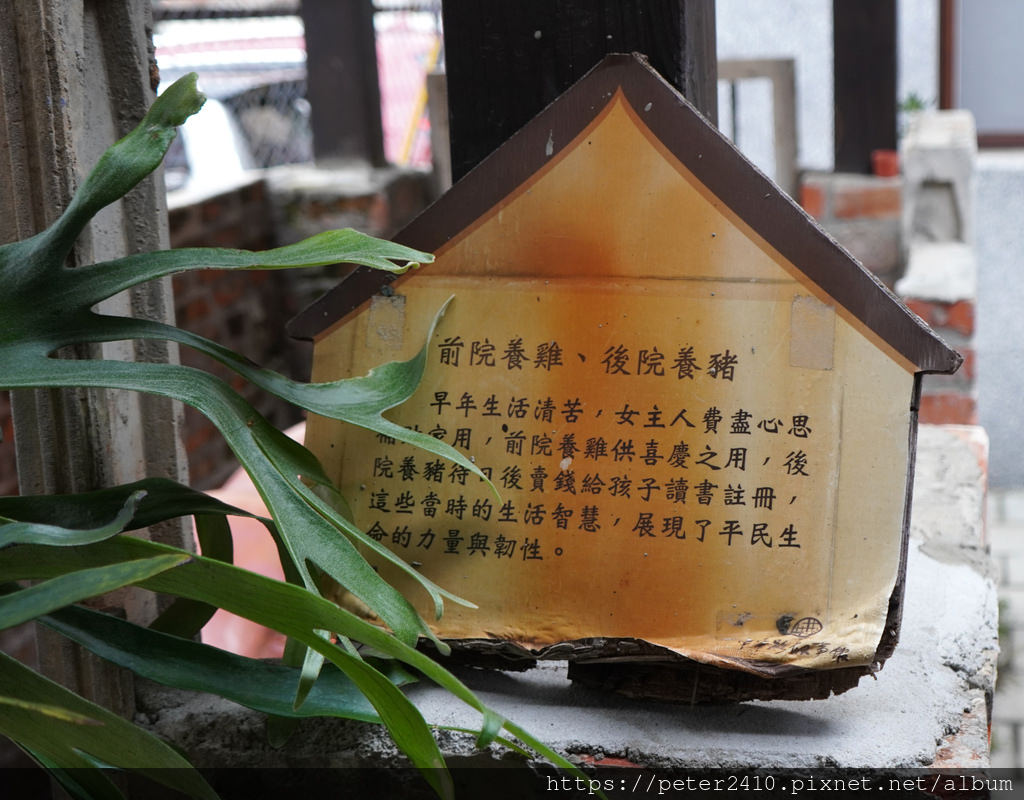 前院養雞、後院養豬
早年生活清苦，女主人費盡心思
補助家用，前院養雞供喜慶之用，後
院養豬待日後賣錢給孩子讀書註冊，
這些當時的生活智慧，展現了平民生
命的力量與韌性。
https://peter2410.pixnet.net/album